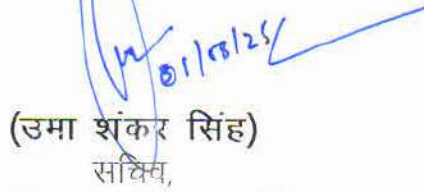 01/08/25
(उमा शंकर सिंह)
सचिव,